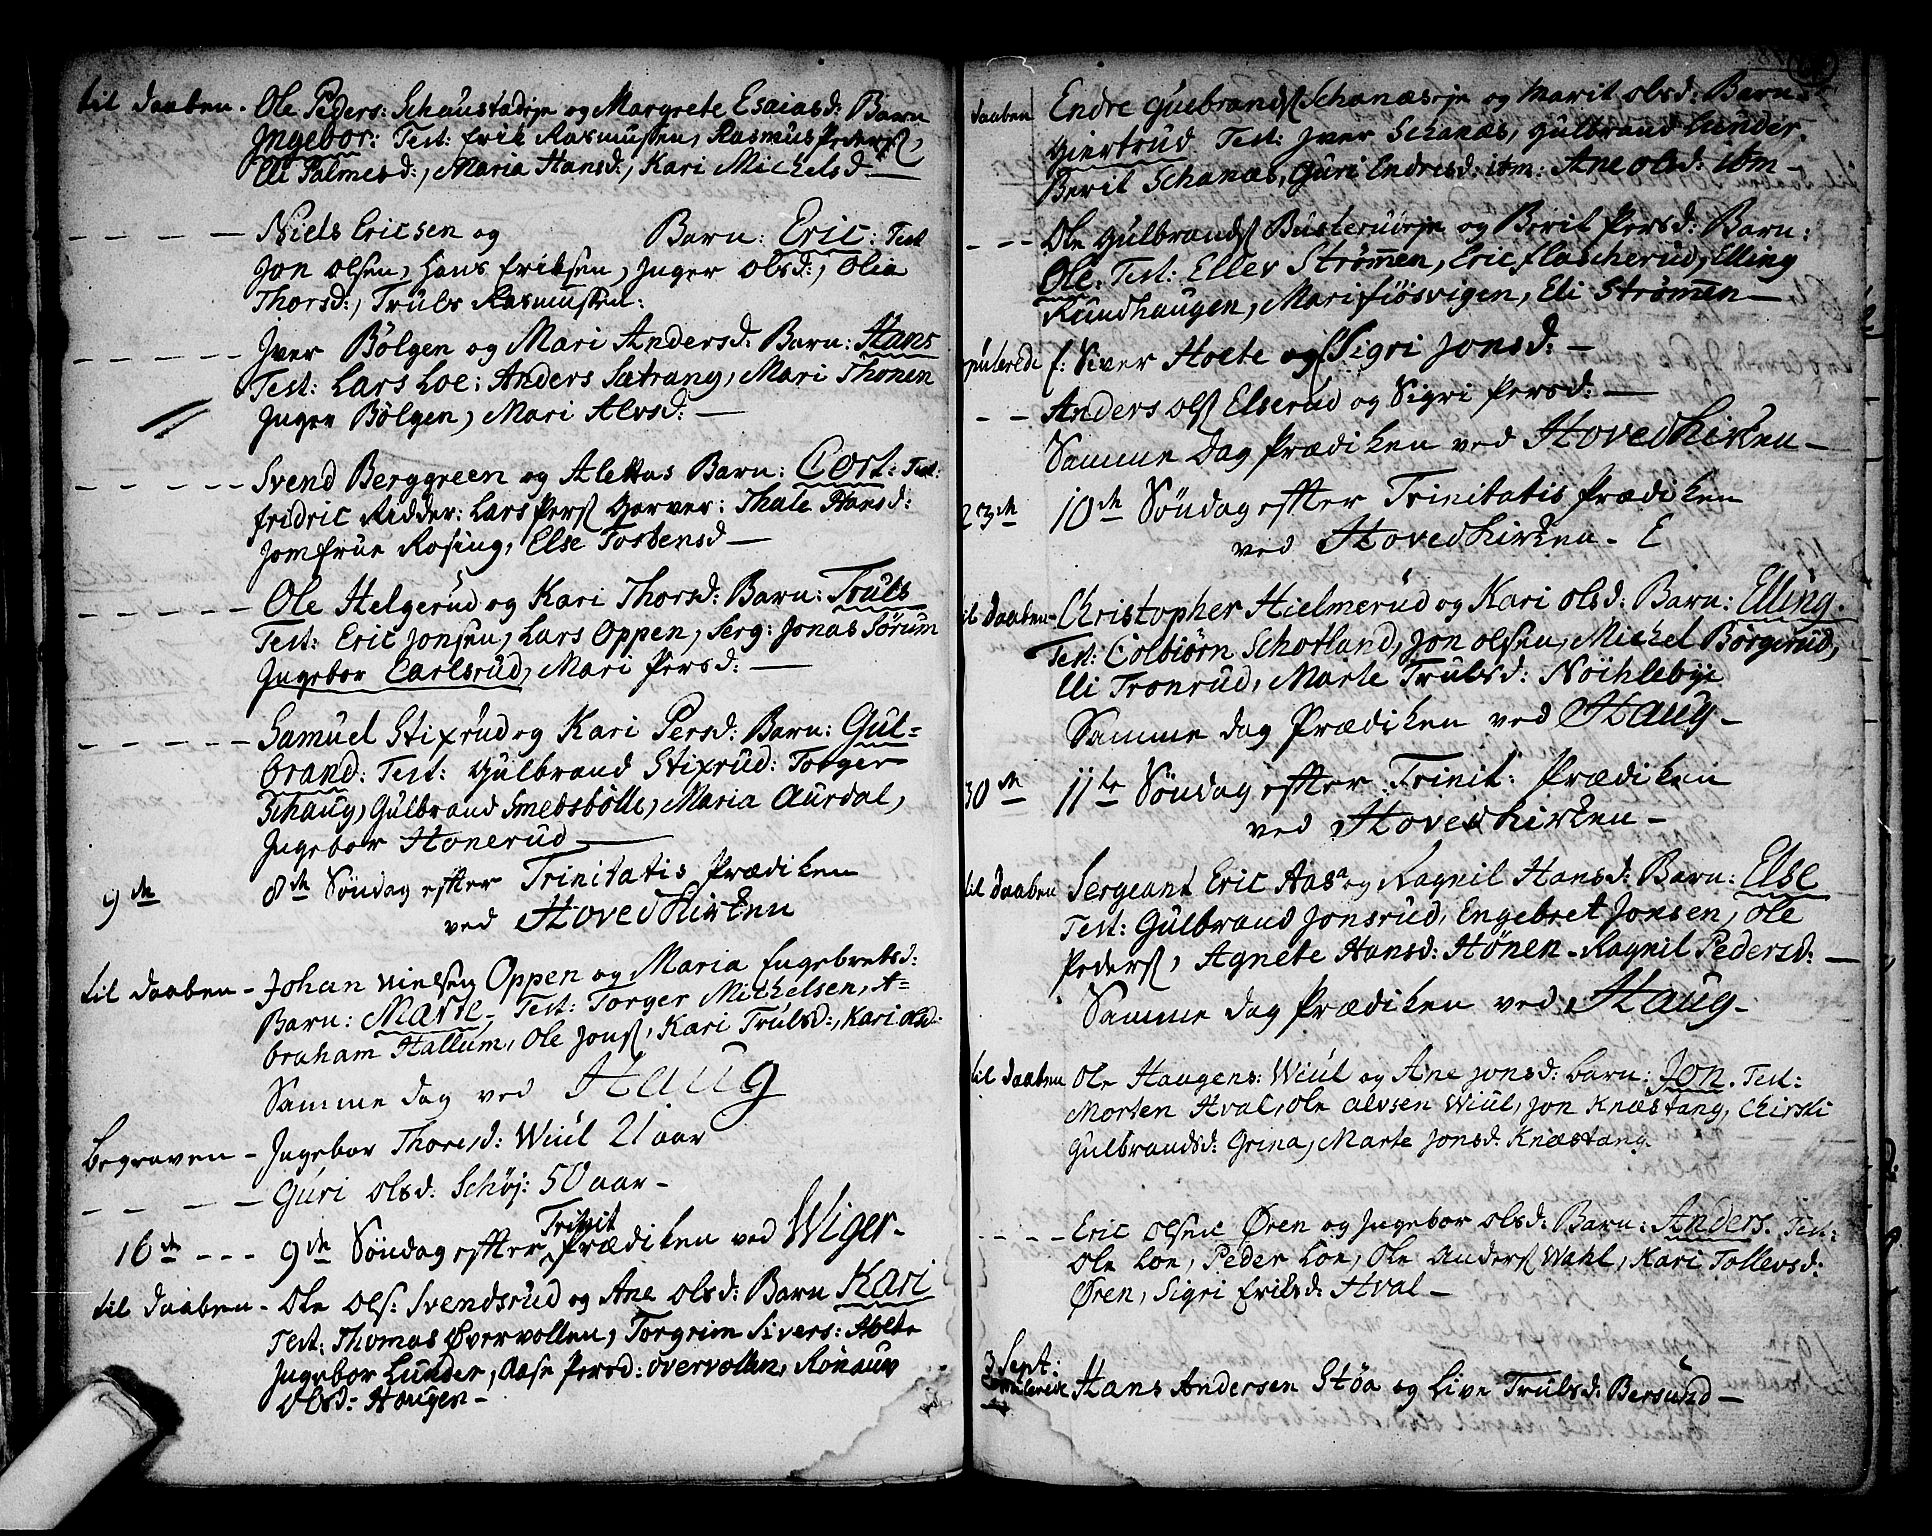 til daaben - Ole Peders: Schaustadeje og Margrete Esaiasd: Barn
Ingebor: Test: Erik Rasmussen, Rasmus Peders,
Eli Palmesd:, Maria Hansd:, Kari Michelsd —
— — — — Niels Ericsen og Barn: Eric: Test
Jon Olsen, Hans Eriksen, Inger Olsd:, Olia
Thorsd:, Truls Rasmussen:
— — — — Iver Bölgen og Mari Andersd: Barn: Hans
Test: Lars Loe: Anders Sætrang, Mari Thonen
Inger Bölgen, Mari Alvsd: —
— — — — Svend Berggreen og Alettas Barn: Cort: Test:
Fridric Ridder: Lars Pers Garver: Thale Hansd:
Jomfrue Rosing, Else Tostensd —
— — — — Ole Helgerud og Kari Thorsd: Barn: Truls
Test: Eric Jonsen, Lars Oppen, Serg: Jonas Sørum
Ingebor Carlsrud, Mari Persd: —
— — — — Samuel Stixrud og Kari Persd: Barn: Gul-
brand: Test: Gulbrand Stixrud: Torger
Schaug, Gulbrand Smedsbölle, Maria Aurdal,
Ingebor Honerud —
9de 8de Söndag efter Trinitatis Prædiken
ved Hovedkirken
til daaben - Johan Nielsen Oppen og Maria Engebretsd:
Barn: Marte, Test: Torger Michelsen, A-
braham Hallum, Ole Jons, Kari Trulsd:, Kari Olsd:
Samme dag ved Haug
Begraven - Ingebor Thoresd: Wiul 21 aar
— — — Guri Olsd: Schöj: 50 aar -
16de - - - 9de Söndag efter Trinit Prædiken ved Wiger -
til daaben - Ole Ols: Svendsrud og Ane Olsd: Barn Kari
Test: Thomas Øvervollen, Torgrim Sivers: Holte
Ingebor Lunder, Aase Persd: Overvollen, Rönaug
Olsd: Haugen -
daaben Endre Guebrands Schanæseje og Marit Olsd: Barn -
Giertrud Test: Iver Schanæs, Gulbrand Lunder,
Berit Schanæs, Guri Endresd: ibm: Ane Olsd: ibm -
- - - Ole Gulbrands Busterudeje og Berit Persd: Barn:
Ole: Test: Eller Strømmen, Eric Flascherud, Elling
Rundhaugen, Mari Fiösvigen, Eli Strømmen —
pulerede f: Siver Holte og Sigri Jonsd: —
- - Anders Ols Elserud og Sigri Persd: —
Samme Dag Prædiken ved Hovedkirken -
23de 10de Söndag efter Trinitatis Prædiken
ved Hovedkirken - E
til daaben - Christopher Hielmerud og Kari Olsd: Barn: Elling.
Test: Colbiörn Schotland, Jon Olsen, Michel Börgerud,
Eli Tronrud, Marte Trulsd: Nöchlebye
Samme dag Prædiken ved Haug -
30de 11te Söndag efter Trinit: Prædiken
ved Hovedkirken -
til daaben Sergeant Eric Aasa og Ragnil Hansd: Barn: Else
Test: Gulbrand Jonsrud, Engebret Jonsen, Ole
Peders, Agnete Hansd: Hønen - Ragnil Pedersd: —
Samme dag Prædiken ved Haug -
til daaben Ole Haugens: Wiul og Ane Jonsd: Barn: Jon. Test:
Morten Hval, Ole Alvsen Wiul, Jon Knæstang, Chirsti
Gulbrandsd: Grina, Marte Jonsd. Knæstang
- - - - Eric Olsene Ören og Ingebor Olsd: Barn: Anders. Test:
Ole Loe, Peder Loe, Ole Anders Wahl, Kari Tollevsd:
Ören, Sigri Eriksd: Hval -
3 Sept:
Hans Andersen Støa og Live Trulsd: Bersund —